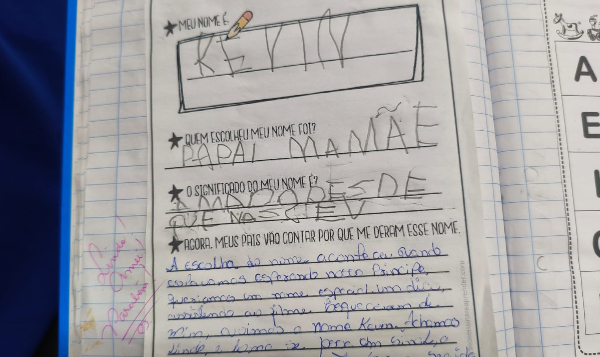 MEU NOME É
KEVIN
QUEM ESCOLHEU MEU NOME FOI?
PAPAI MAMÃE
O SIGNIFICADO DO MEU NOME É?
AMADO DESDE
QUE NASCEU
AGORA, MEUS PAIS VÃO CONTAR POR QUE ME DERAM ESSE NOME.
A escolha do nome aconteceu quando
estávamos esperando nosso Príncipe
queríamos um nome especial um dia,
assistindo ao filme Esqueceram de
mim, ouvimos o nome Kevin. Achamos
lindo, e
A
E